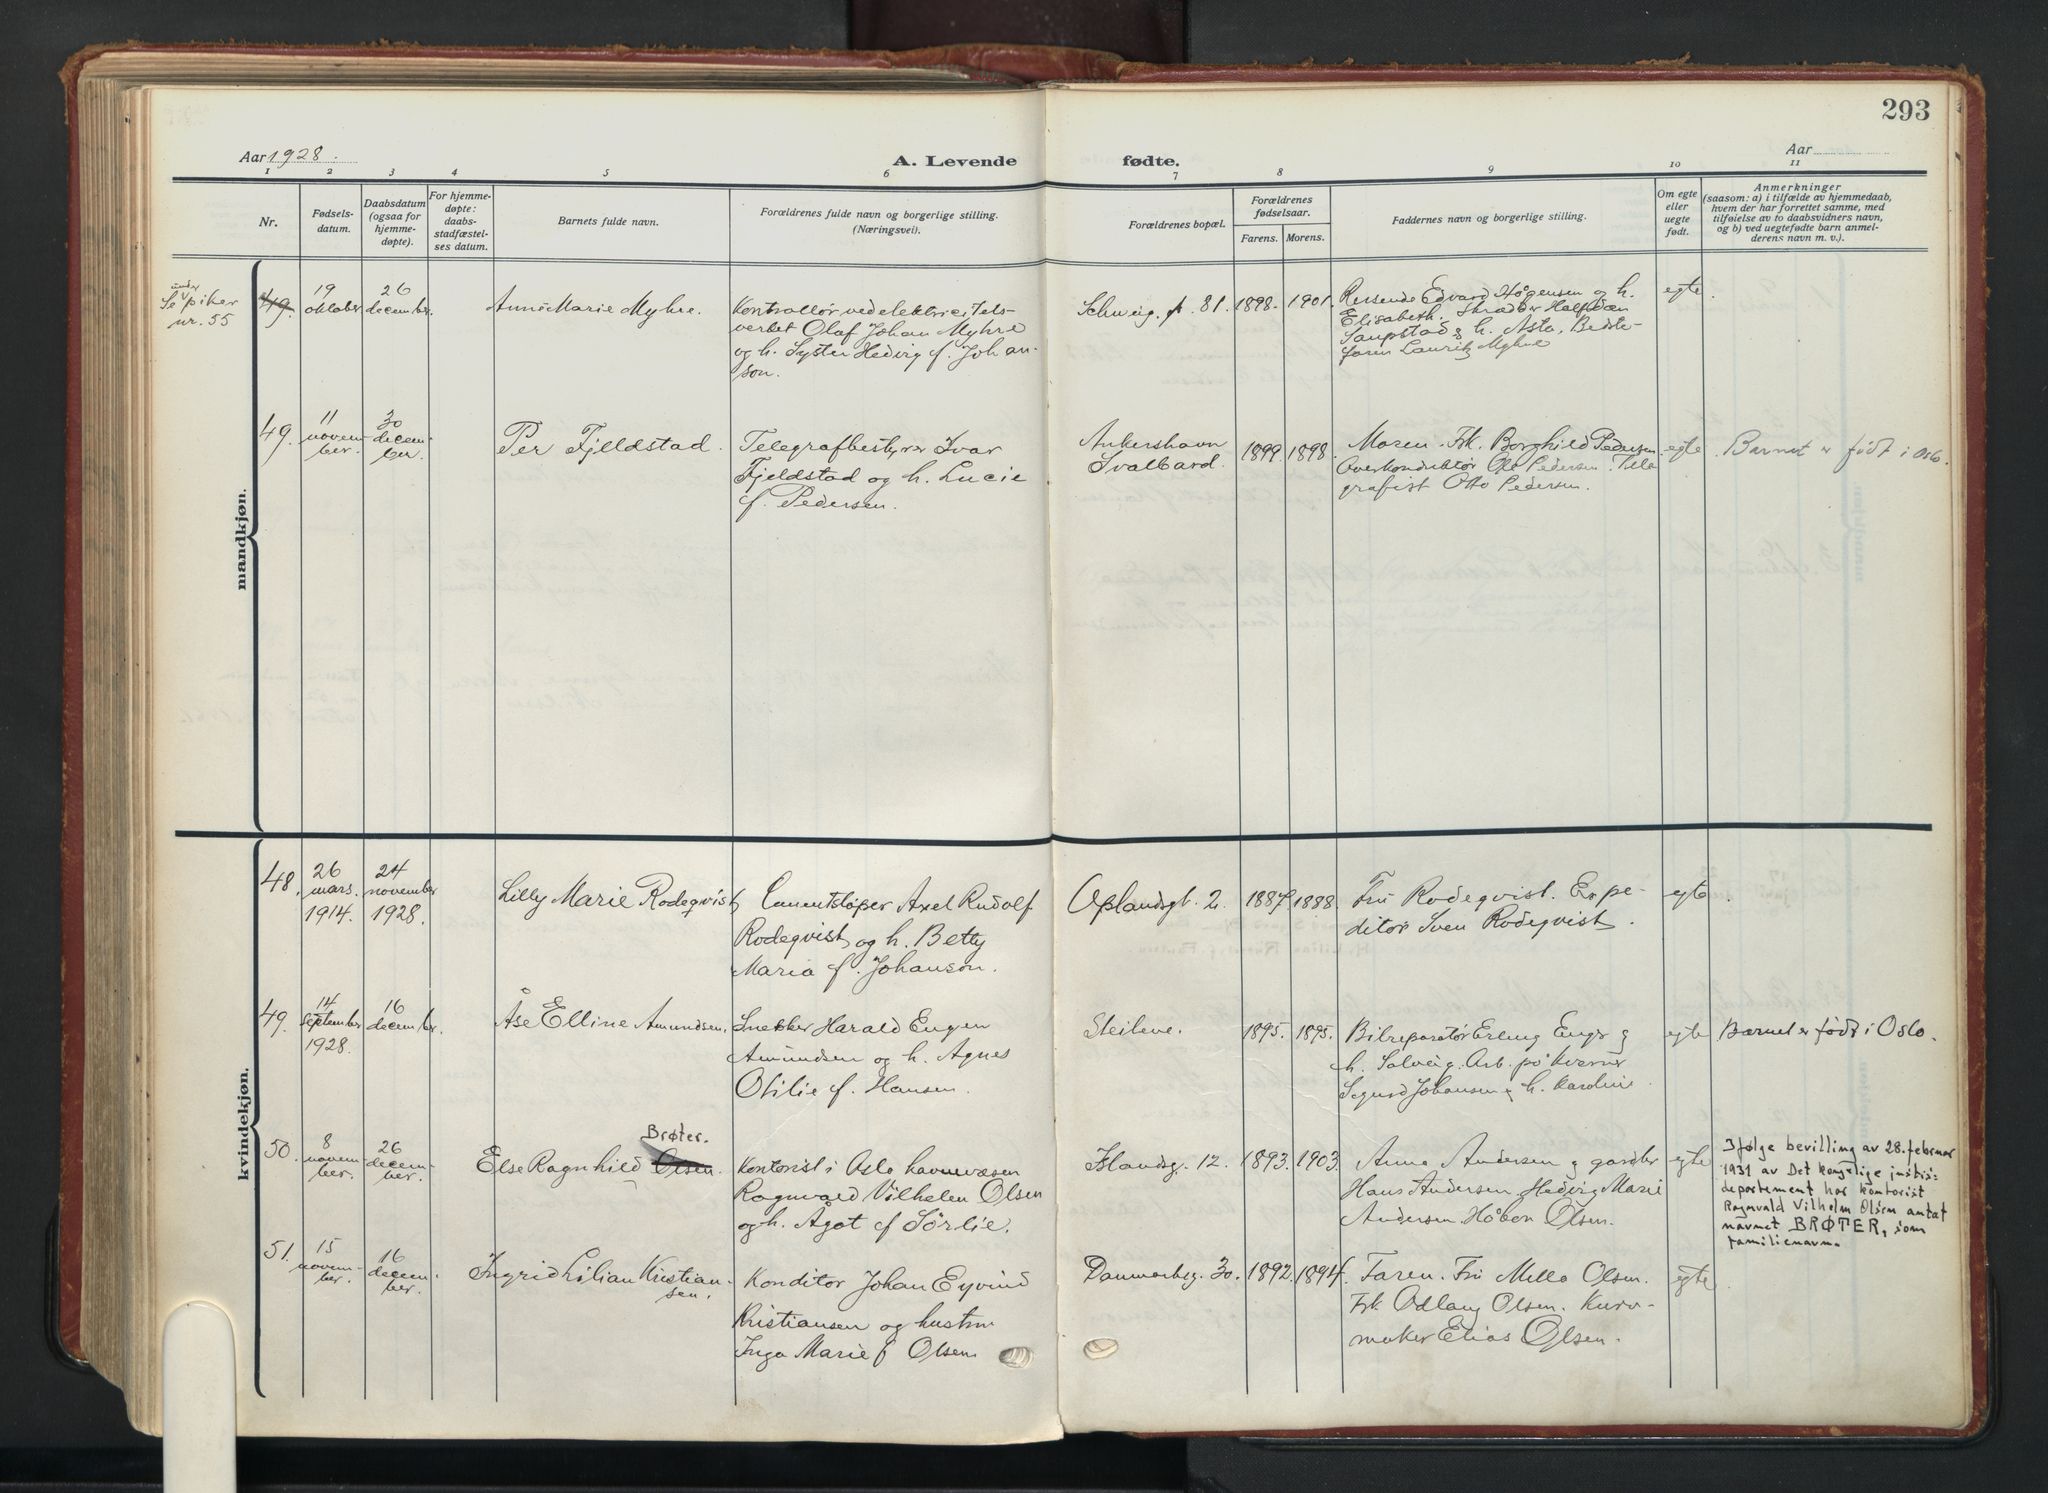 293
Aar 1928.
A. Levende
fødte.
Aar
1 2 3 4 5 6
7 8 9 10 11
Nr.
Fødsels-
datum.
Daabsdatum
(ogsaa for
hjemme-
døpte).
For hjemme-
døpte:
daabs-
stadfæstel-
ses datum.
Barnets fulde navn.
Forældrenes fulde navn og borgerlige stilling.
(Næringsvei).
Forældrenes bopæl.
Forældrenes
fødselsaar.
Farens. Morens.
Faddernes navn og borgerlige stilling.
Om egte
eller
uegte
født.
Anmerkninger
(saasom: a) i tilfælde av hjemmedaab,
hvem der har forrettet samme, med
tilføielse av to daabsvidners navn,
og b) ved uegtefødte barn anmel-
derens navn m. v.).
mandkjøn.
Se under piker
nr. 55
49.
19
oktober
26
december.
Anne Marie Myhre.
Kontrollør ved elektricitets-
verket Olaf Johan Myhre
og h. Syster Hedvig f. Johan-
son.
Schweig. 81.
1898.
1901.
Reisende Edvard Høgensen og h.
Elisabeth. Skrædder Halfdan
Saupstad & h. Asta, Bedste-
faren Lauritz Myhre
egte.
49.
11
novem-
ber
30
decem-
ber.
Per Fjeldstad.
Telegrafbestyrer Ivar
Fjeldstad og h. Lucie
f. Pedersen.
Ankershavn
Svalbard.
1899.
1898.
Moren. Frk. Borghild Pedersen
Overkonduktør Ole Pedersen. Tele
grafist Otto Pedersen.
egte.
Barnet er født i Oslo.
kvindekjøn.
48.
26
mars.
1914.
24
november
1928.
Lilly Marie Rodeqvist
Cementstøper Axel Rudolf
Rodeqvist og h. Betty
Maria f. Johanson.
Oplandsgt. 2.
1887.
1888.
Fru Rodeqvist. Expe-
ditør Sven Rodeqvist.
egte
49.
14
september
1928.
16
december.
Åse Elline Amundsen.
Snekker Harald Eugen
Amundsen og h. Agnes
Otilie f. Hansen.
Steilene.
1895.
1895.
Bilreparatør Erling Enger &
h. Solveig. Arb. på Kværner
Sigurd Johansen & h. Karoline
egte
Barnet er født i Oslo.
50.
8
novem-
ber
26
decem-
ber.
Brøter.
Else Ragnhild Olsen.
Kontorist i Oslo havnevæsen
Ragnvald Vilhelm Olsen
og h. Ågot f. Sørlie.
Islandsg. 12.
1893.
1903.
Anna Andersen & gartner
Hans Andersen, Hedvig Marie
Andersen Håkon Olsen.
egte
Ifølge bevilling av 28. februar
1931 av Det kongelige justis-
departement har kontorist
Ragnvald Vilhelm Olsen antat
navnet BRØTER, som
familienavn.
51.
15
novem-
ber.
16
decem-
ber.
Ingrid Lilian Kristian-
sen.
Konditor Johan Eyvind
Kristiansen og hustru
Inga Marie f Olsen
Danmarksg. 30.
1892.
1894.
Faren. Fru Milla Olsen.
Frk Odlaug Olsen. Kurv-
maker Elias Olsen.
egte